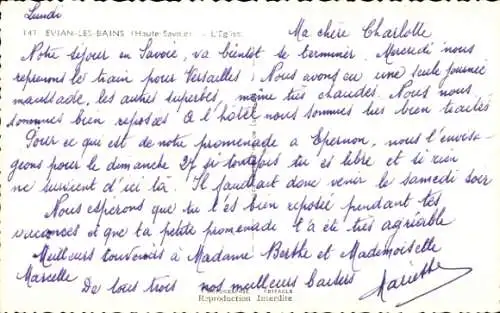 Lundi
141 EVIAN-LES-BAINS (Haute-Savoie) - L'Eglise
Ma chère Charlotte
Notre séjour en Savoie, va bientôt se terminer. Mercredi nous
reprenons le train pour Versailles. Nous avons eu une seule journée
maussade, les autres superbes, même très chaudes. Nous nous
sommes bien reposées et à l'hôtel nous sommes très bien traités
Pour ce qui est de notre promenade à Epernon, nous l'envisa-
geons pour le dimanche 27 si toutefois tu es libre et si rien
ne survient d'ici là. Il faudrait donc venir le samedi soir
Nous espérons que tu t'es bien reposée pendant tes
vacances et que ta petite promenade t'a été très agréable
Meilleurs souvenirs à Madame Berthe et Mademoiselle
Marcelle
De tous trois nos meilleurs baisers
Mariette
Reproduction Interdite